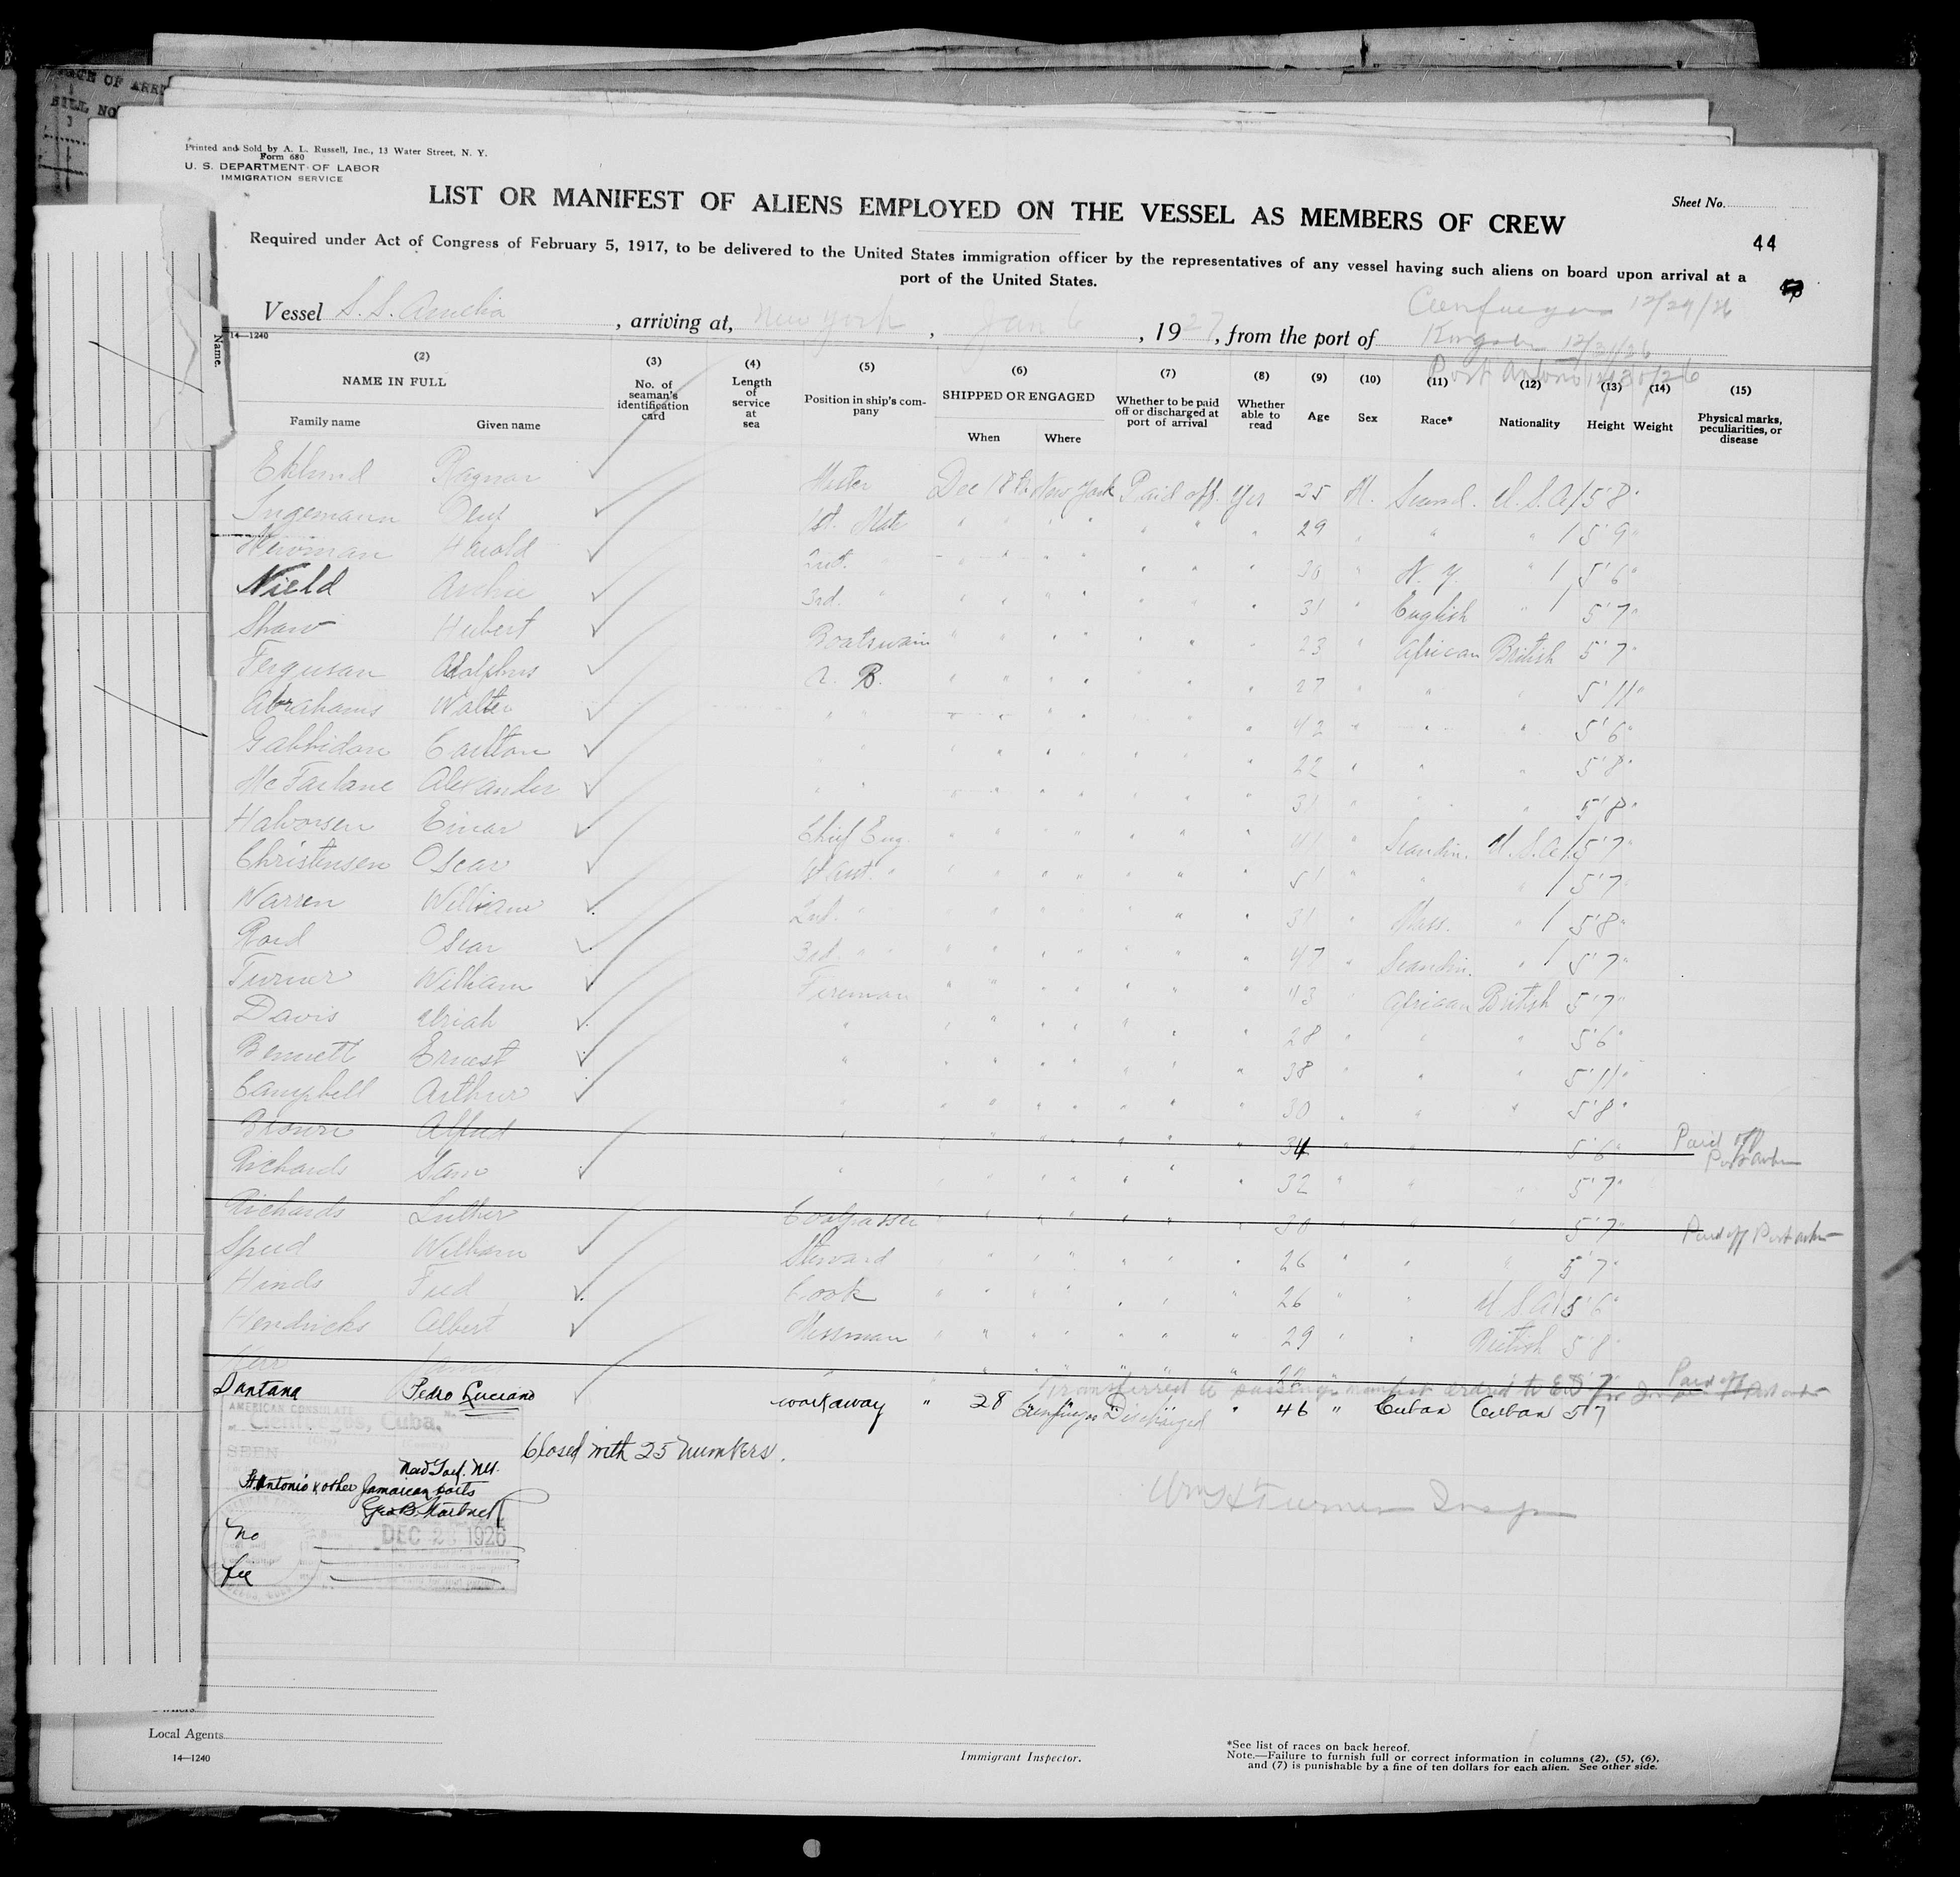 Printed and Sold by A. L. Russell, Inc., 13 Water Street, N. Y.
Form 680
U. S. DEPARTMENT OF LABOR
IMMIGRATION SERVICE
LIST OR MANIFEST OF ALIENS EMPLOYED ON THE VESSEL AS MEMBERS OF CREW
Sheet No.
44
Required under Act of Congress of February 5, 1917, to be delivered to the United States immigration officer by the representatives of any vessel having such aliens on board upon arrival at a
port of the United States.
Vessel S.S. Amelia, arriving at, New York, Jan 6, 1927, from the port of Cienfuegos 12/29/26
Kingston 12/31/26
Port Antonio
14—1240
Name.
(2) (3) (4) (5) (6) (7) (8) (9) (10) (11) (12) (13) (14) (15)
NAME IN FULL
Family name Given name
No. of seaman's identification card
Length of service at sea
Position in ship's company
SHIPPED OR ENGAGED
When Where
Whether to be paid off or discharged at port of arrival
Whether able to read
Age Sex Race* Nationality Height Weight
Physical marks, peculiarities, or disease
Eklund Ragnar Master Dec 18 New York Paid off. Yes 25 M. Scand. U.S.A. 5' 8"
Ingemann Oluf 1st. Mate " " " " 29 " " " 5' 9"
Newman Harold 2nd. " " " " " 30 " N.Y. " 5' 6"
Nield Archie 3rd. " " " " " 31 " English " 5' 7"
Shaw Hubert Boatswain " " " " 23 " African British 5' 7"
Ferguson Adolphus A. B. " " " " 27 " " " 5' 11"
Abrahams Walter " " " " " " 42 " " " 5' 6"
Gabbidon Carlton " " " " " 22 " " " 5' 8"
McFarlane Alexander " " " " " " 31 " " " 5' 8"
Halvorsen Einar Chief Eng. " " " " 41 " Scandin. U.S.A. 5' 7"
Christensen Oscar 1st Asst. " " " " " 51 " " " 5' 7"
Warren William 2nd. " " " " " 31 " Mass. " 5' 8"
Oscar 3rd. " " " " " " 47 " Scandin. " 5' 7"
Turner William Fireman " " " " 43 " African British 5' 7"
Davis Uriah " " " " " 28 " " " 5' 6"
Bennett Ernest " " " " " 38 " " " 5' 11"
Campbell Arthur " " " " " 30 " " " 5' 8"
Brown Alfred " " " " " 34 " " " 5' 6" Paid off
Port Anto
Richards Sam " " " " " 32 " " " 5' 7"
Richards Luther Coalpasser " " " " 30 " " " 5' 7" Paid off Port anto
Speed William Steward " " " " 26 " " " 5' 7"
Hinds Fred Cook " " " " 26 " " U.S.A. 5' 6"
Hendricks Albert Messman " " " " 29 " " British 5' 8"
Kerr James " " " " " Paid off
Transferred to passenger manifest
Santana Pedro Luciano workaway " 28 Cienfuegos Discharged " 46 " Cuban Cuban 5 7
AMERICAN CONSULATE
Cienfuegos, Cuba.
SEEN
Closed with 25 numbers.
Pt Antonio & other Jamaican ports
DEC 28 1926
no
fee
Wm H Turner Insp
Local Agents
14—1240
Immigrant Inspector.
*See list of races on back hereof.
Note.—Failure to furnish full or correct information in columns (2), (5), (6),
and (7) is punishable by a fine of ten dollars for each alien. See other side.